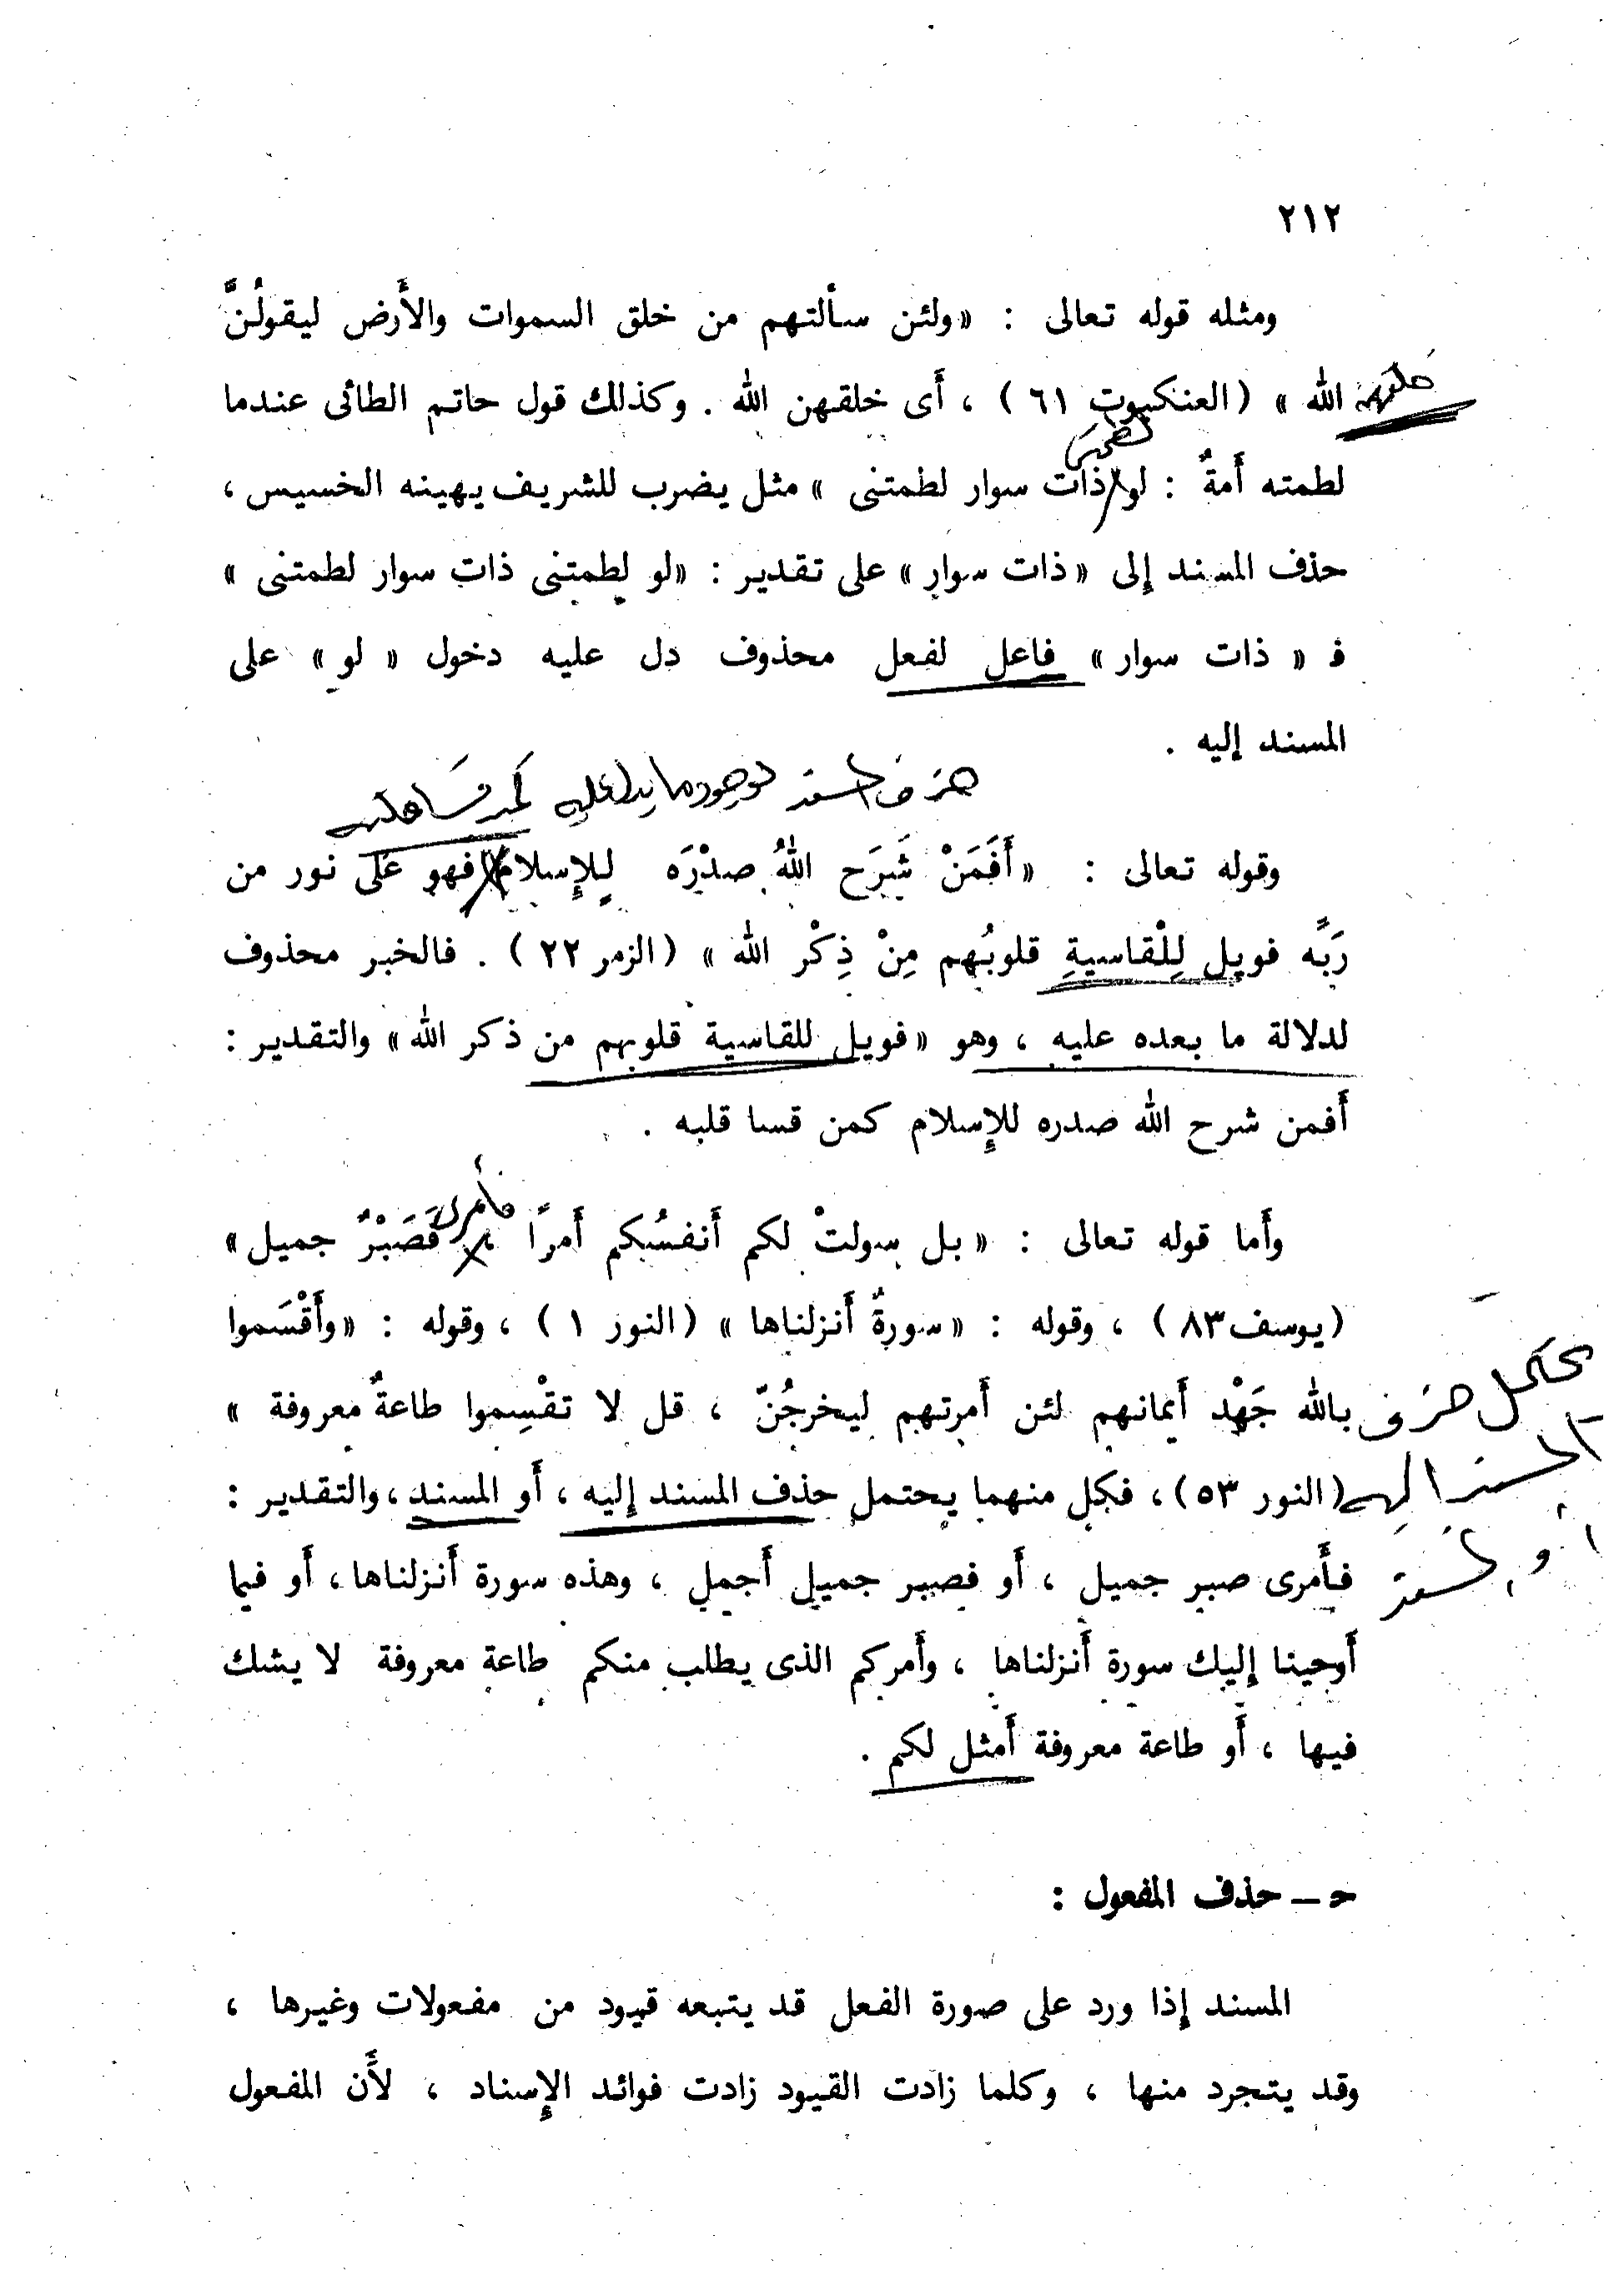 ٢١٢
ومثله قوله تعالى : «ولئن سألتهم من خلق السموات والأرض ليقولُنَّ
خلقهن
الله » (العنكبوت ٦١) ، أَى خلقهن الله . وكذلك قول حاتم الطائى عندما
لطمتنى
لطمته أَمةٌ : لو ذات سوار لطمتنى » مثل يضرب للشريف يهينه الخسيس ،
حذف المسند إلى «ذات سوار» على تقدير : «لو لطمتنى ذات سوار لطمتنى »
فـ « ذات سوار» فاعل لفعل محذوف دل عليه دخول « لو » على
المسند إليه .
حذف المسند لوجود ما يدل عليه كمن قسا قلبه
وقوله تعالى : «أَفَمَنْ شَرَح اللهُ صدْرَه لِلإِسلام فهو عَلى نور من
رَبِّه فويل لِلْقاسيةِ قلوبُهم مِنْ ذِكْر الله » (الزمر ٢٢) . فالخبر محذوف
لدلالة ما بعده عليه ، وهو «فويل للقاسية قلوبهم من ذكر الله» والتقدير :
أَفمن شرح الله صدره للإِسلام كمن قسا قلبه .
فأمرى
وأَما قوله تعالى : « بل سولتْ لكم أَنفسُكم أَمرًا ، فَصَبْرٌ جميل»
(يوسف ٨٣) ، وقوله : «سورةٌ أَنزلناها » (النور ١) ، وقوله : «وأَقْسَموا
يحتمل حذف
بالله جَهْد أَيمانهم لئن أَمرتهم ليخرجُنّ ، قل لا تقْسِموا طاعةٌ معروفة »
المسند إليه
(النور ٥٣) ، فكل منهما يحتمل حذف المسند إليه ، أَو المسند ، والتقدير :
أو المسند
فأَمرى صبر جميل ، أَو فصبر جميل أَجمل ، وهذه سورة أَنزلناها ، أَو فيما
أَوحينا إليك سورة أَنزلناها ، وأَمركم الذى يطلب منكم طاعة معروفة لا يشك
فيها ، أَو طاعة معروفة أَمثل لكم .
حـ – حذف المفعول :
المسند إذا ورد على صورة الفعل قد يتبعه قيود من مفعولات وغيرها ،
وقد يتجرد منها ، وكلما زادت القيود زادت فوائد الإِسناد ، لأَن المفعول